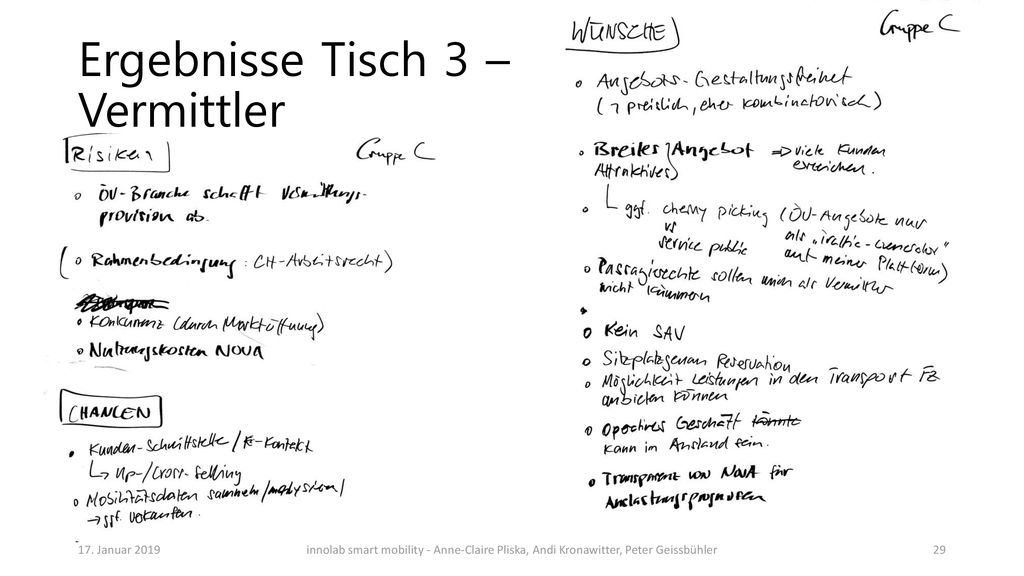 Ergebnisse Tisch 3 –
Vermittler
Risiken
Gruppe C
ÖV-Branche schafft Vermittlungs-
provision ab.
(Rahmenbedingung: CH-Arbeitsrecht)
Konkurrenz (durch Marktöffnung)
Nutzungskosten NOVA
CHANCEN
Kunden-Schnittstelle/K-Kontakt
↳ Up-/Cross-Selling
Mobilitätsdaten sammeln/analysieren/
→ ggf. verkaufen.
WÜNSCHE
Gruppe C
Angebots-Gestaltungsfreiheit
(¬ preislich, eher kombinatorisch)
Breites/Angebot ⇒ viele Kunden
Attraktives) erreichen.
ggf. cherry picking (ÖV-Angebote nur
vs als „Traffic-Generator"
service public auf meiner Plattform)
Passagierrechte sollen mich als Vermittler
nicht kümmern
Kein SAV
Sitzplatzgenaue Reservation
Möglichkeit Leistungen in den Transport FZ
anbieten können
Operatives Geschäft könnte
kann im Ausland sein.
Transparenz von NOVA für
Auslastungsprognosen
17. Januar 2019
innolab smart mobility - Anne-Claire Pliska, Andi Kronawitter, Peter Geissbühler
29